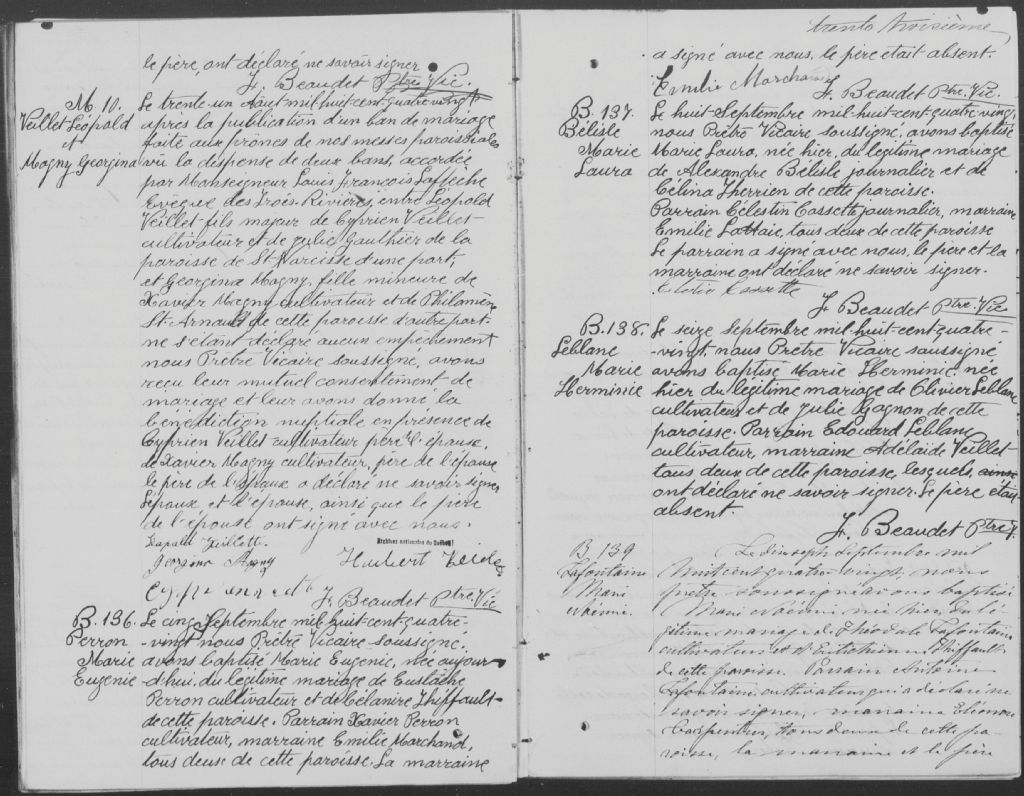 le père, ont déclaré ne savoir signer
Fr. Beaudet Ptre Vic.
M. 10.
Veillet Léopold
et
Magny Georgina
Le trente un Août mil-huit-cent-quatre-vingt
après la publication d'un ban de mariage
faite aux prônes de nos messes paroissiales
vu la dispense de deux bans, accordée
par Monseigneur Louis François Laflèche
Evêque des Trois-Rivières, entre Léopold
Veillet fils majeur de Cyprien Veillet
cultivateur et de Julie Gauthier de la
paroisse de St-Narcisse d'une part,
et Georgina Magny, fille mineure de
Xavier Magny cultivateur et de Philomène
St-Arnault de cette paroisse d'autre part
ne s'étant déclaré aucun empêchement
nous Prêtre Vicaire soussigné, avons
reçu leur mutuel consentement de
mariage et leur avons donné la
bénédiction nuptiale en présence de
Cyprien Veillet cultivateur père épouse,
de Xavier Magny cultivateur, père de l'épouse
le père de l'époux a déclaré ne savoir signer
L'époux et l'épouse, ainsi que le père
de l'épouse ont signé avec nous.
Archives nationales du Québec
Georgina Magny
Hubert
Fr. Beaudet Ptre. Vic
B. 136.
Perron
Marie
Eugenie
Le cinq Septembre mil-huit-cent-quatre-
-vingt nous Prêtre Vicaire soussigné.
avons baptisé Marie Eugenie, née aujour-
-d'hui du légitime mariage de Eustache
Perron cultivateur et de Célanire Thiffault-
de cette paroisse. Parrain Xavier Perron
cultivateur, marraine Emilie Marchand,
tous deux de cette paroisse. La marraine
trente troisième
a signé avec nous. le père était absent.
Emilie Marchand
Fr. Beaudet Ptre. Vic.
B. 137.
Bélisle
Marie
Laura
Le huit Septembre mil-huit-cent-quatre-vingt,
nous Prêtre Vicaire soussigné, avons baptisé
Marie Laura, née hier, du légitime mariage
de Alexandre Bélisle journalier et de
Célina Therrien de cette paroisse.
Parrain Célestin Cossette journalier, marraine
Emilie tous deux de cette paroisse
Le parrain a signé avec nous, le père et la
marraine ont déclaré ne savoir signer.
Célestin Cossette
Fr. Beaudet Ptre. Vic
B. 138.
Leblanc
Marie
Herminie
Le seize Septembre mil-huit-cent-quatre-
-vingt, nous Prêtre Vicaire soussigné
avons baptisé Marie Herminie, née
hier du légitime mariage de Olivier Leblanc
cultivateur et de Julie Gagnon de cette
paroisse. Parrain Edouard Leblanc
cultivateur, marraine Adélaïde Veillet
tous deux de cette paroisse, lesquels,
ont déclaré ne savoir signer. Le père était
absent.
Fr. Beaudet Ptre V.
B. 139
Lafontaine
Marie
Noémie
Le dix sept Septembre mil
huit cent quatre-vingt, nous
prêtre soussigné avons baptisé
Marie Noémie née hier, du lé-
gitime mariage de Théodule Lafontaine
cultivateur et d' Thiffault
de cette paroisse. Parrain Antoine
Lafontaine cultivateur qui a déclaré ne
savoir signer, marraine Eléonore
Charpentier, tous deux de cette pa-
roisse, la marraine et le père